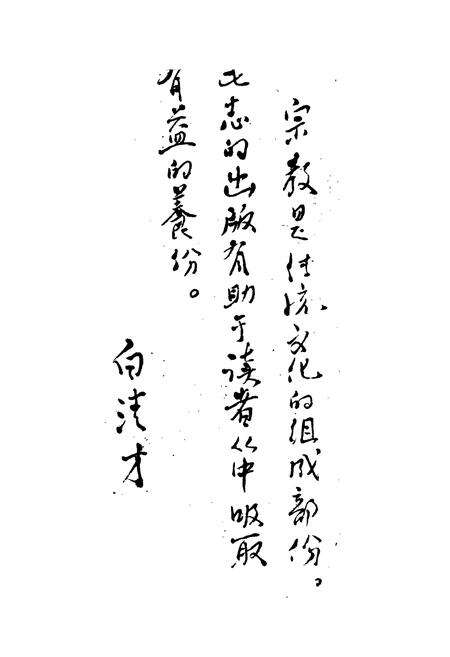 宗教是传统文化的组成部份。
此志的出版有助于读者从中吸取
有益的养份。
白清才